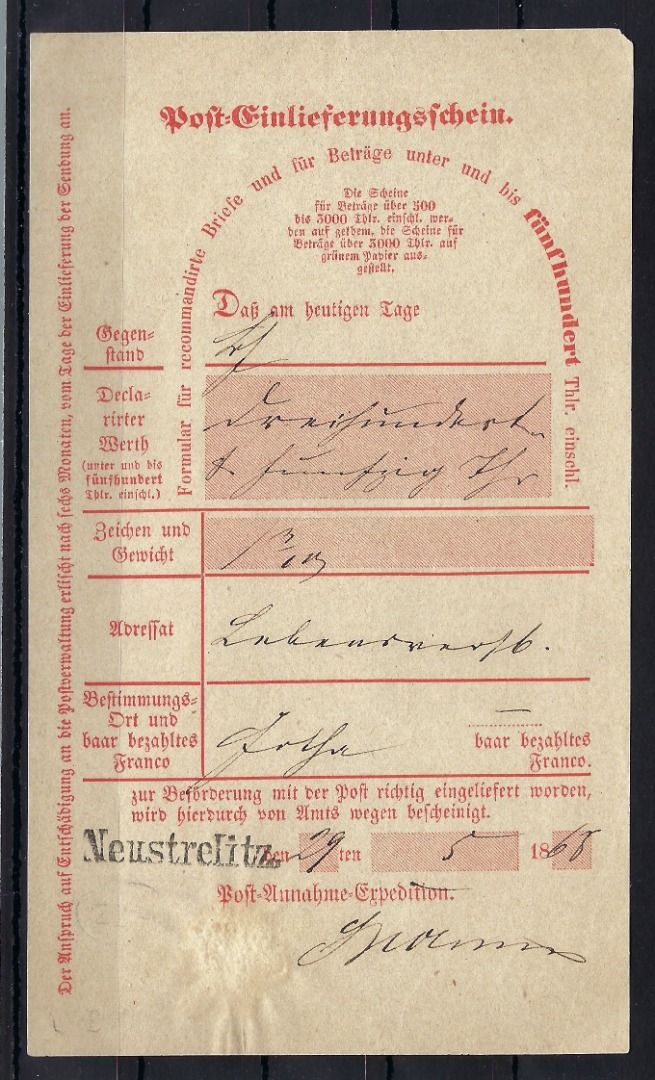 Post-Einlieferungsschein.
Formular für recommandirte Briefe und für Beträge unter und bis fünfhundert Thlr. einschl.
Die Scheine
für Beträge über 500
bis 3000 Thlr. einschl. wer-
den auf gelbem, die Scheine für
Beträge über 3000 Thlr. auf
grünem Papier aus-
gestellt.
Daß am heutigen Tage
Gegen-
stand
Decla-
rirter
Werth
(unter und bis
fünfhundert
Thlr. einschl.)
Dreihundert
& funfzig Thr
Zeichen und
Gewicht
Adressat
Lebensversb.
Bestimmungs-
Ort und
baar bezahltes
Franco
Gotha
—
baar bezahltes
Franco.
zur Beförderung mit der Post richtig eingeliefert worden,
wird hierdurch von Amts wegen bescheinigt.
Neustrelitz den 29 ten 5 1868
Post-Annahme-Expedition.
Der Anspruch auf Entschädigung an die Postverwaltung erlischt nach sechs Monaten, vom Tage der Einlieferung der Sendung an.